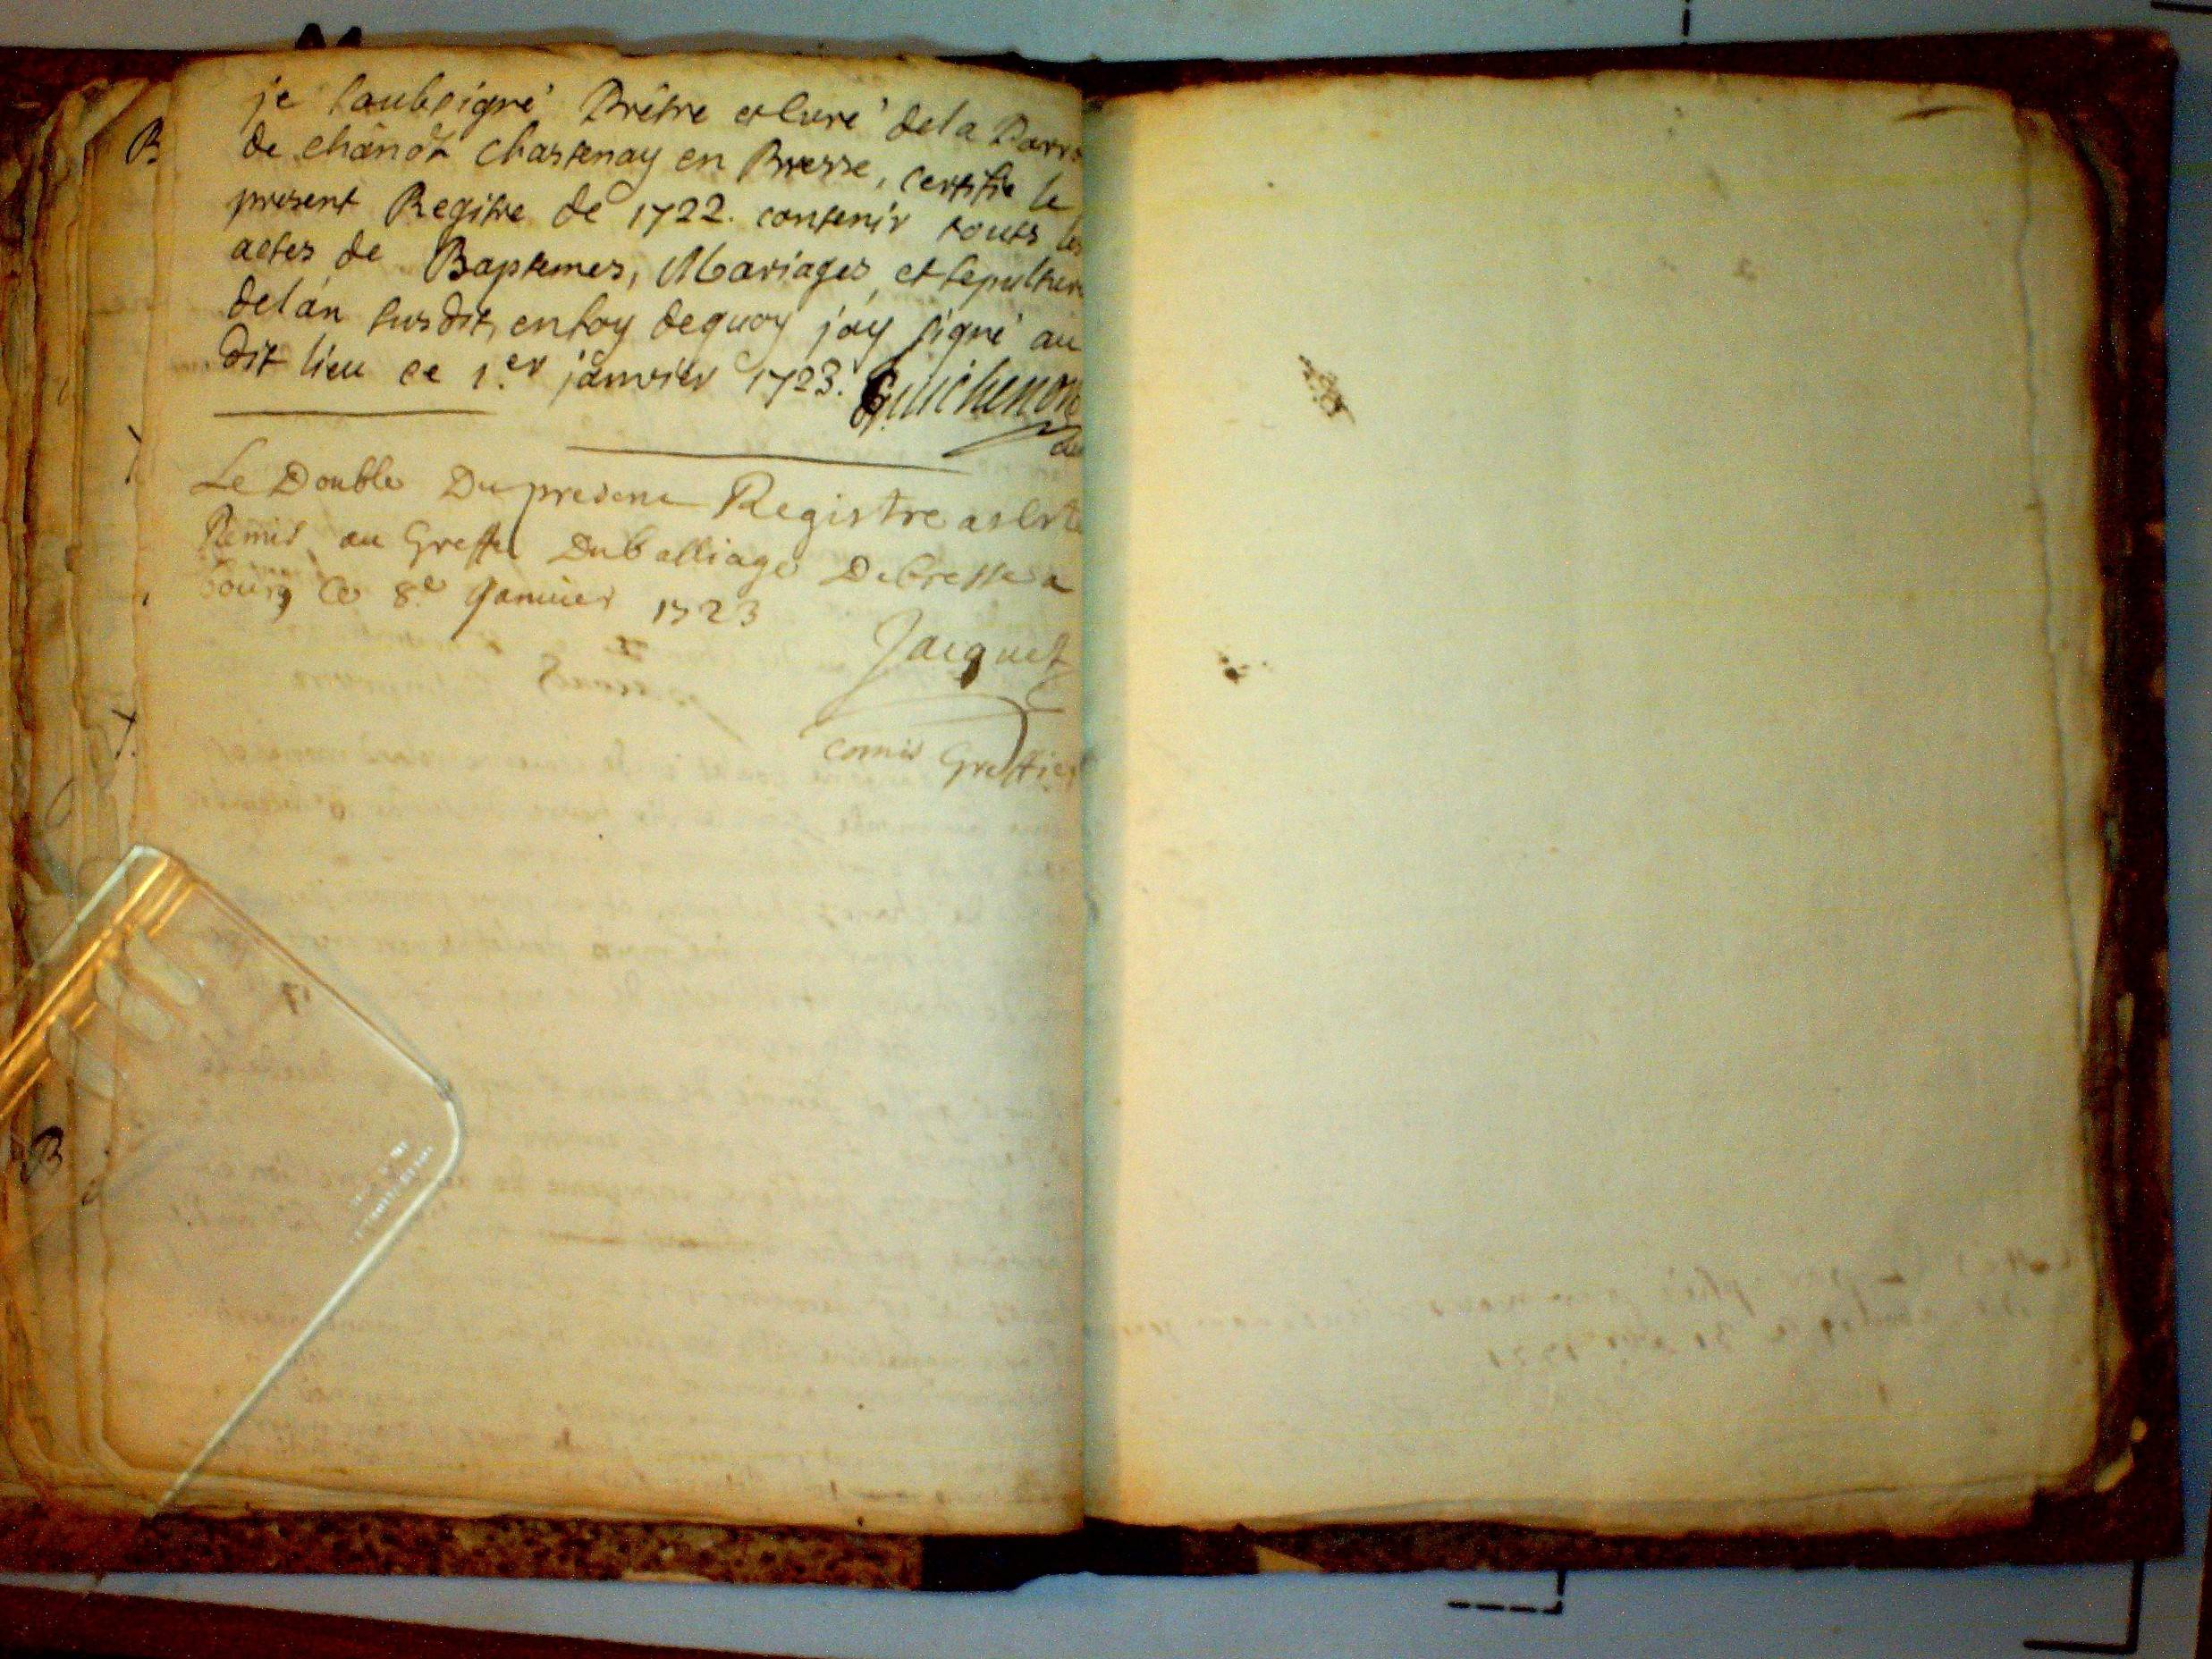 je soubsigné Prêtre et Curé dela Parro
de chânoz Chastenay en Bresse, certifie le
present Regitre de 1722. contenir touts les
actes de Baptemes, Mariages, et sepulture
delán susdit, enfoy dequoy j'ay signé au
dit lieu ce 1.er janvier 1723. Guichenon
Le Double Du present Registre a este
Remis au Greffe Du balliage De bresse a
bourg Ce 8.e Januier 1723
Jacquet
Comis Greffier
B
B